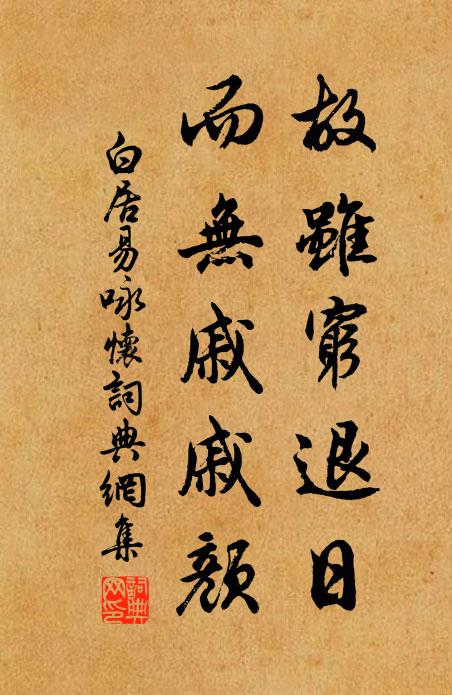 故雖窮退日
而無戚戚顏
白居易咏懷詞典網集
詞典
网印